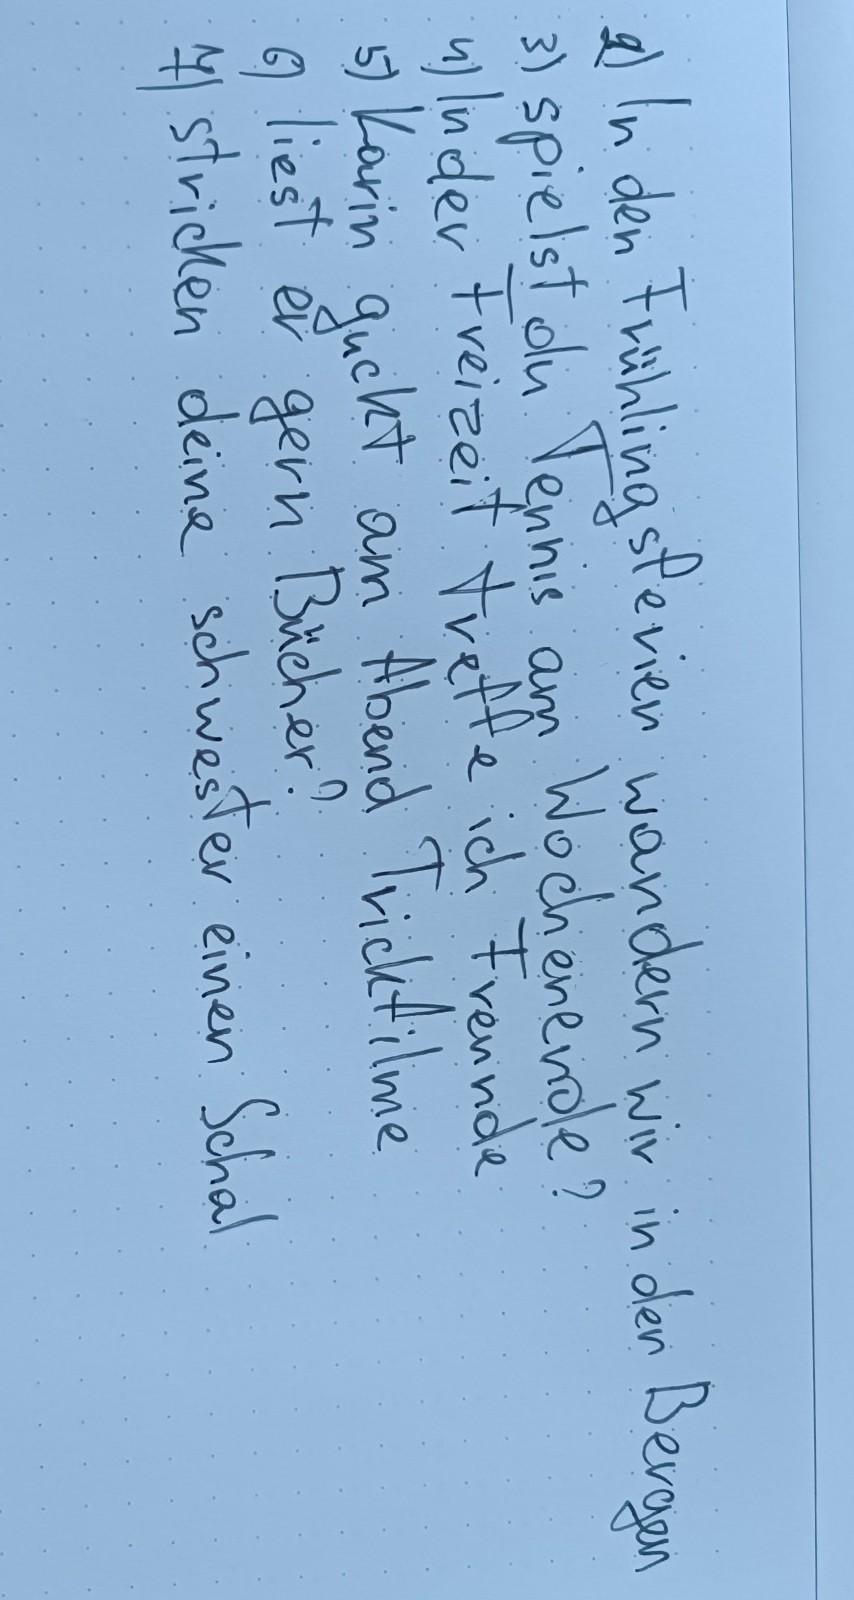 2) In den Frühlingsferien wandern wir in den Bergen
3) spielst du Tennis am Wochenende?
4) In der Freizeit treffe ich Freunde
5) Karin guckt am Abend Trickfilme
6) liest er gern Bücher?
7) stricken deine schwester einen Schal